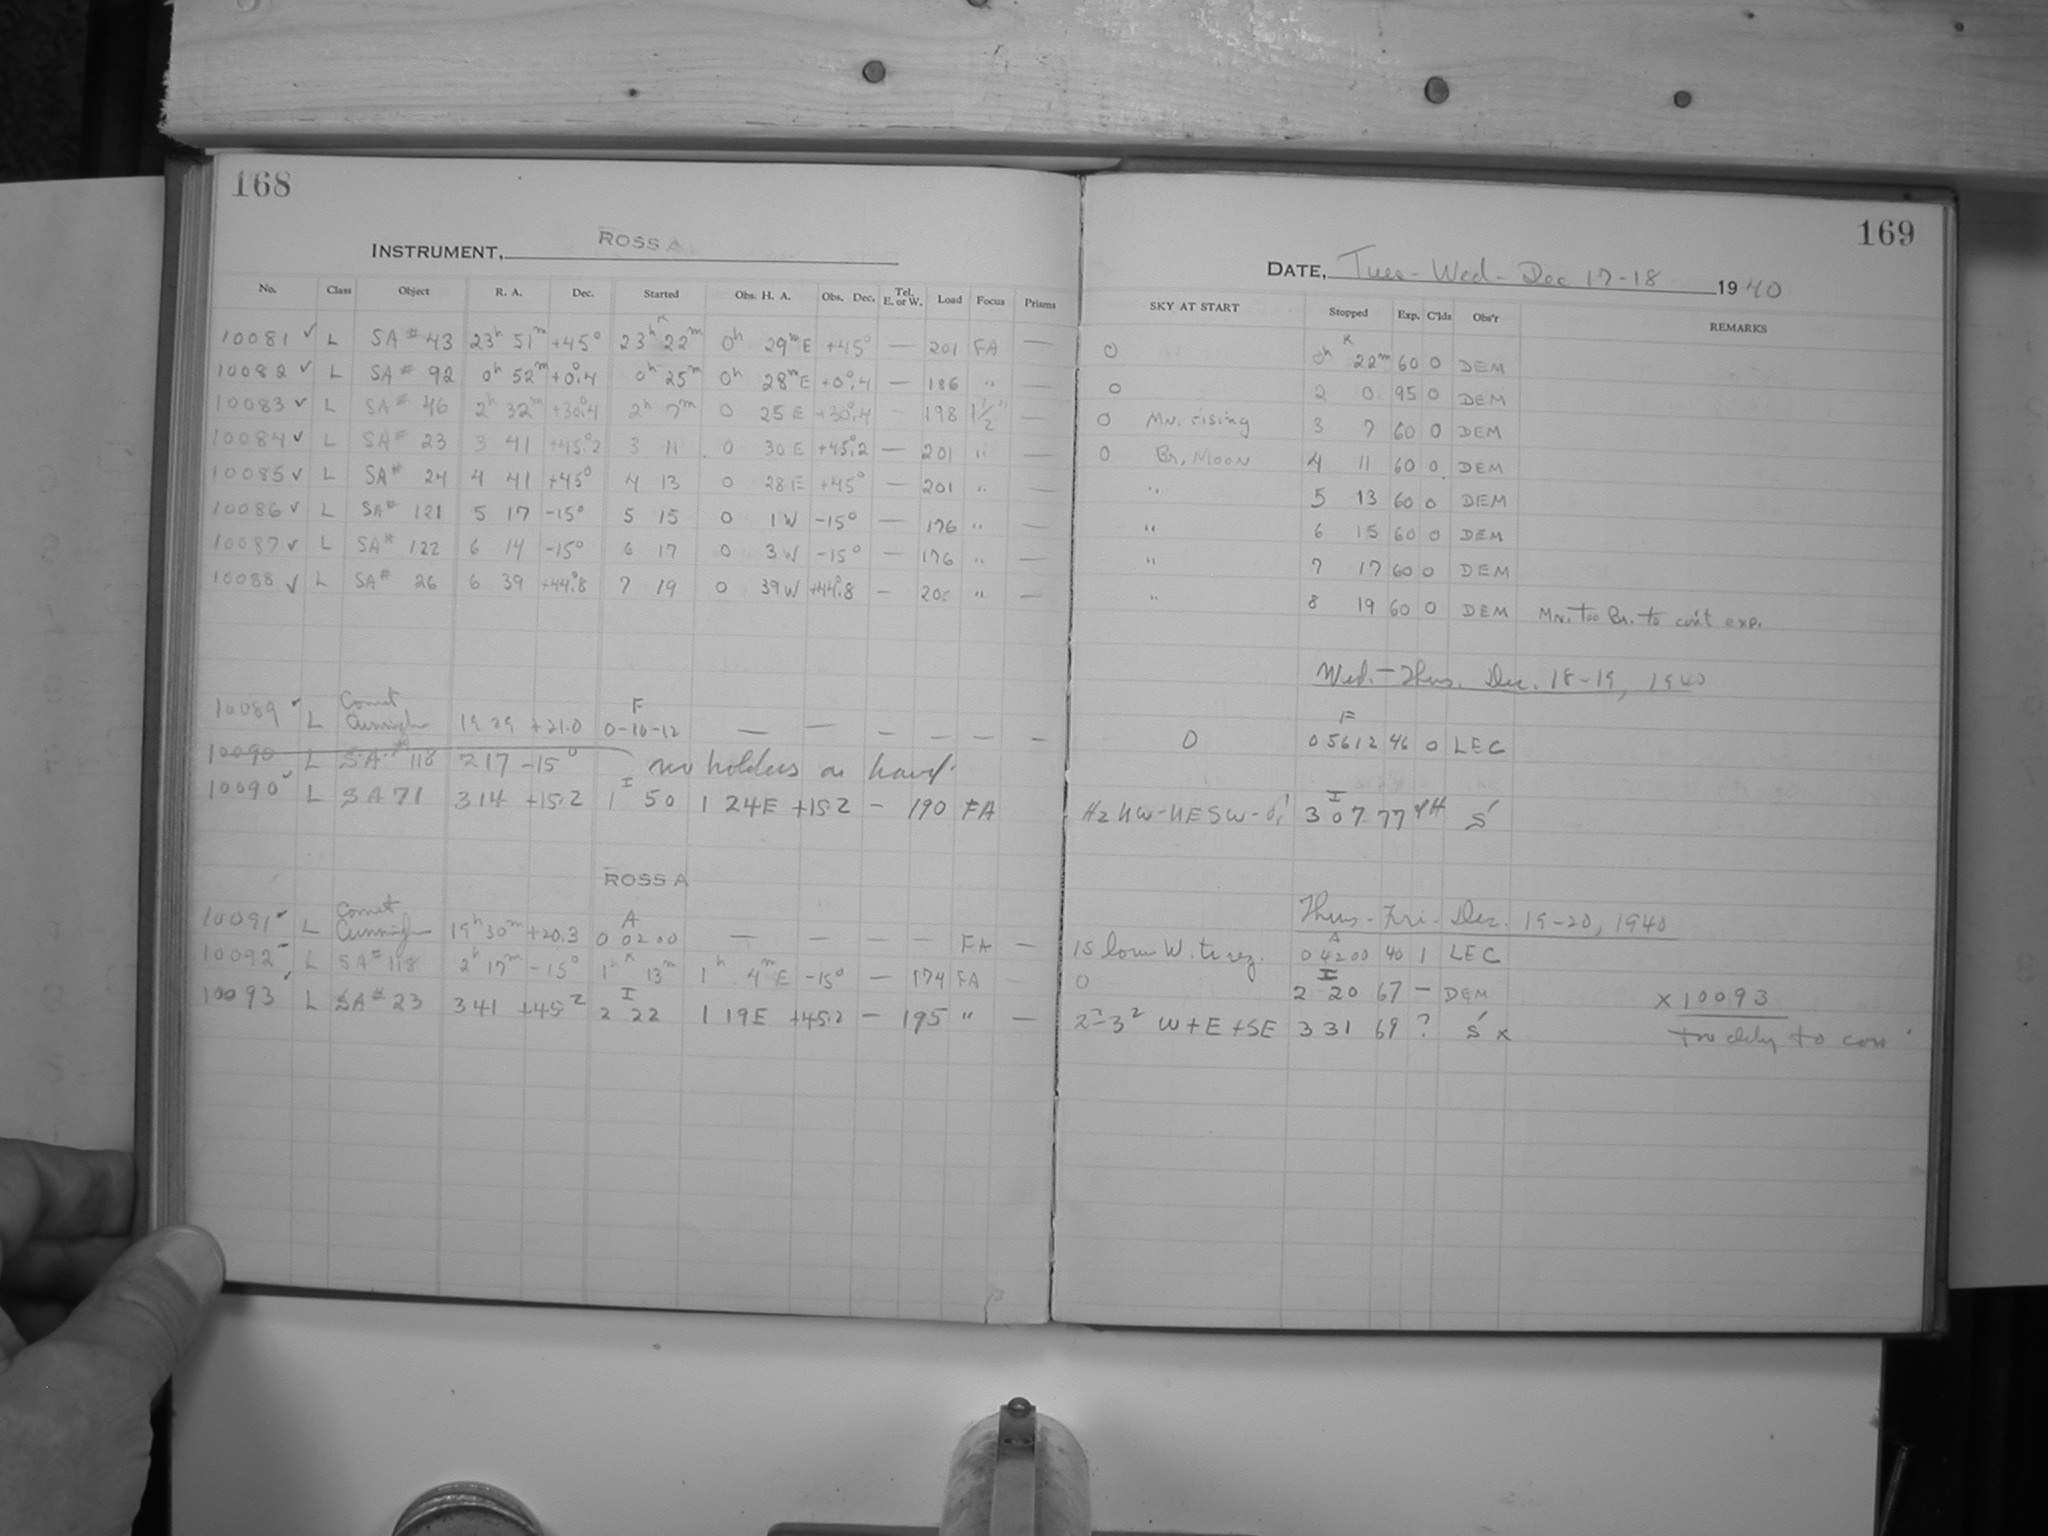 168
INSTRUMENT, ROSS A
No. Class Object R. A. Dec. Started Obs. H. A. Obs. Dec. Tel. E. or W. Load Focus Prisms
10081 ✓ L SA # 43 23h 51m +45° 23h K 22m 0h 29m E +45° — 201 FA —
10082 ✓ L SA # 92 0h 52m +0°.4 0h 25m 0h 28m E +0°.4 — 186 " —
10083 ✓ L SA # 46 2h 32m +30°.4 2h 7m 0 25 E +30°.4 — 198 1 1/2" —
10084 ✓ L SA # 23 3 41 +45°.2 3 11 0 30 E +45°.2 — 201 " —
10085 ✓ L SA # 24 4 41 +45° 4 13 0 28 E +45° — 201 " —
10086 ✓ L SA # 121 5 17 -15° 5 15 0 1 W -15° — 176 " —
10087 ✓ L SA # 122 6 14 -15° 6 17 0 3 W -15° — 176 " —
10088 ✓ L SA # 26 6 39 +44°.8 7 19 0 39 W +44°.8 — " —
10089 ✓ L Comet Cunningham 19 29 +21.0 F 0-10-12 — — — — — —
10090 L SA # 118 2 17 -15° no holders on hand.
10090 ✓ L SA 71 3 14 +15.2 I 1 50 1 24E +15.2 — 190 FA
ROSS A
10091 ✓ L Comet Cunningham 19h 30m +20.3 A 0 02 00 — — — — FA —
10092 L SA # 118 2h 17m -15° 1h K 13m 1h 4m E -15° — 174 FA —
10093 L SA # 23 3 41 +45.2 I 2 22 1 19E +45.2 — 195 " —
169
DATE, Tues - Wed - Dec 17-18 1940
SKY AT START Stopped Exp. C'lds Obs'r REMARKS
0 0h K 22m 60 0 DEM
0 2 0 95 0 DEM
0 Mn. rising 3 7 60 0 DEM
0 Br. Moon 4 11 60 0 DEM
" 5 13 60 0 DEM
" 6 15 60 0 DEM
" 7 17 60 0 DEM
" 8 19 60 0 DEM Mn. Too Br. to con't exp.
Wed. - Thus. Dec. 18-19, 1940
0 F 0 56 12 46 0 LEC
Hz NW-NE SW- I 3 07 77 S
Thus - Fri - Dec. 19-20, 1940
15 low W. A 0 42 00 40 1 LEC
0 I 2 20 67 — DEM
W + E + SE 3 31 69 ? S x
x 10093
to con